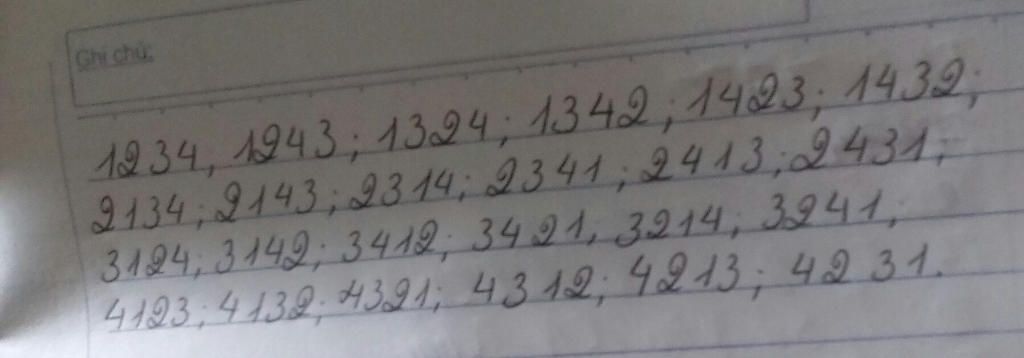 Ghi chú:
1234, 1243; 1324; 1342; 1423; 1432;
2134; 2143; 2314; 2341; 2413; 2431;
3124; 3142; 3412; 3421, 3214; 3241;
4123; 4132; 4321; 4312; 4213; 4231.